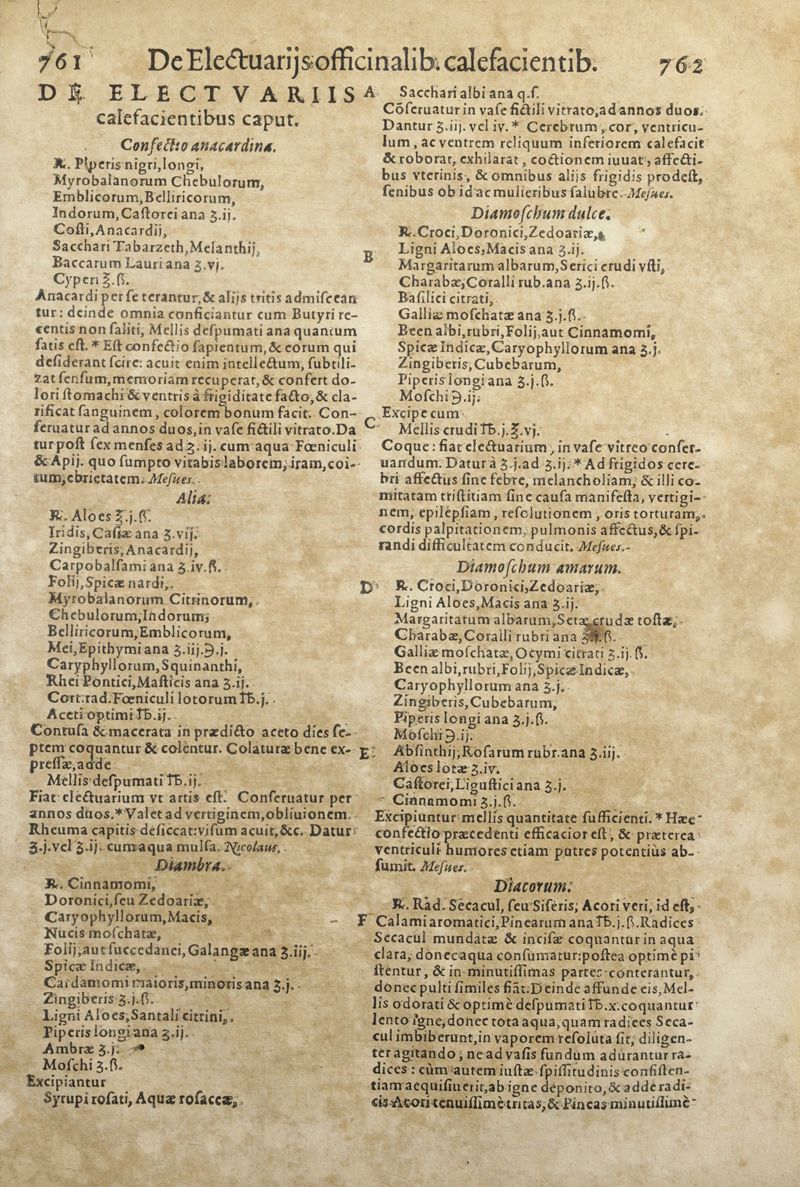 761 De Electuarijs officinalib. calefacientib. 762
DE ELECTVARIIS
calefacientibus caput.
Confectio anacardina.
℞. Piperis nigri, longi,
Myrobalanorum Chebulorum,
Emblicorum, Belliricorum,
Indorum, Caſtorei ana ʒ.ij.
Coſti, Anacardij,
Sacchari Tabarzeth, Melanthij,
Baccarum Lauri ana ʒ.vj.
Cyperi ℥.ß.
Anacardi per ſe terantur, & alijs tritis admiſcean
tur: deinde omnia conficiantur cum Butyri re-
centis non ſaliti, Mellis deſpumati ana quantum
ſatis eſt. * Eſt confectio ſapientum, & eorum qui
deſiderant ſcire: acuit enim intellectum, ſubtili-
zat ſenſum, memoriam recuperat, & confert do-
lori ſtomachi & ventris à frigiditate facto, & cla-
rificat ſanguinem, colorem bonum facit. Con-
ſeruatur ad annos duos, in vaſe fictili vitrato. Da
tur poſt ſex menſes ad ʒ.ij. cum aqua Fœniculi
& Apij. quo ſumpto vitabis laborem, iram, coi-
tum, ebrietatem. Meſues.
Alia.
℞. Aloes ℥.j.ß.
Iridis, Caſiæ ana ʒ.vij.
Zingiberis, Anacardij,
Carpobalſami ana ʒ.iv.ß.
Folij, Spicæ nardi,
Myrobalanorum Citrinorum,
Chebulorum, Indorum,
Belliricorum, Emblicorum,
Mei, Epithymi ana ʒ.iij.℈.j.
Caryphyllorum, Squinanthi,
Rhei Pontici, Maſticis ana ʒ.ij.
Cort. rad. Fœniculi lotorum ℔.j.
Aceti optimi ℔.ij.
Contuſa & macerata in prædicto aceto dies ſe-
ptem coquantur & colentur. Colaturæ bene ex-
preſſæ, adde
Mellis deſpumati ℔.ij.
Fiat electuarium vt artis eſt. Conſeruatur per
annos duos. * Valet ad vertiginem, obliuionem.
Rheuma capitis deſiccat: viſum acuit, &c. Datur
ʒ.j. vel ʒ.ij. cum aqua mulſa. Nicolaus.
Diambra.
℞. Cinnamomi,
Doronici, ſeu Zedoariæ,
Caryophyllorum, Macis,
Nucis moſchatæ,
Folij, aut ſuccedanei, Galangæ ana ʒ.iij.
Spicæ Indicæ,
Cardamomi maioris, minoris ana ʒ.j.
Zingiberis ʒ.j.ß.
Ligni Aloes, Santali citrini,
Piperis longi ana ʒ.ij.
Ambræ ʒ.j.
Moſchi ʒ.ß.
Excipiantur
Syrupi roſati, Aquæ roſaceæ,
A Sacchari albi ana q.ſ.
Cõſeruatur in vaſe fictili vitrato, ad annos duos.
Dantur ʒ.iij. vel iv. * Cerebrum, cor, ventricu-
lum, ac ventrem reliquum inferiorem calefacit
& roborat, exhilarat, coctionem iuuat, affecti-
bus vterinis, & omnibus alijs frigidis prodeſt,
ſenibus ob id ac mulieribus ſalubre. Meſues.
Diamoſchum dulce.
℞. Croci, Doronici, Zedoariæ,
B Ligni Aloes, Macis ana ʒ.ij.
Margaritarum albarum, Serici crudi vſti,
Charabæ, Coralli rub. ana ʒ.ij.ß.
Baſilici citrati,
Galliæ moſchatæ ana ʒ.j.ß.
Been albi, rubri, Folij, aut Cinnamomi,
Spicæ Indicæ, Caryophyllorum ana ʒ.j.
Zingiberis, Cubebarum,
Piperis longi ana ʒ.j.ß.
Moſchi ℈.ij.
Excipe cum
C Mellis crudi ℔.j.℥.vj.
Coque: fiat electuarium, in vaſe vitreo conſer-
uandum. Datur à ʒ.j. ad ʒ.ij. * Ad frigidos cere-
bri affectus ſine febre, melancholiam, & illi co-
mitatam triſtitiam ſine cauſa manifeſta, vertigi-
nem, epilepſiam, reſolutionem, oris torturam,
cordis palpitationem, pulmonis affectus, & ſpi-
randi difficultatem conducit. Meſues.
Diamoſchum amarum.
D ℞. Croci, Doronici, Zedoariæ,
Ligni Aloes, Macis ana ʒ.ij.
Margaritarum albarum, Setæ crudæ toſtæ,
Charabæ, Coralli rubri ana ʒ.ij.ß.
Galliæ moſchatæ, Ocymi citrati ʒ.ij.ß.
Been albi, rubri, Folij, Spicæ Indicæ,
Caryophyllorum ana ʒ.j.
Zingiberis, Cubebarum,
Piperis longi ana ʒ.j.ß.
Moſchi ℈.ij.
E Abſinthij, Roſarum rubr. ana ʒ.iij.
Aloes lotæ ʒ.iv.
Caſtorei, Liguſtici ana ʒ.j.
Cinnamomi ʒ.j.ß.
Excipiuntur mellis quantitate ſufficienti. * Hæc
confectio præcedenti efficacior eſt, & præterea
ventriculi humores etiam putres potentiùs ab-
ſumit. Meſues.
Diacorum.
℞. Rad. Secacul, ſeu Siſeris, Acori veri, id eſt,
F Calami aromatici, Pinearum ana ℔.j.ß. Radices
Secacul mundatæ & inciſæ coquantur in aqua
clara, donec aqua conſumatur: poſtea optimè pi
ſtentur, & in minutiſſimas partes conterantur,
donec pulti ſimiles fiãt. Deinde affunde eis, Mel-
lis odorati & optimè deſpumati ℔.x. coquantur
lento igne, donec tota aqua, quam radices Seca-
cul imbiberunt, in vaporem reſoluta ſit, diligen-
ter agitando, ne ad vaſis fundum adurantur ra-
dices: cùm autem iuſtæ ſpiſſitudinis conſiſten-
tiam aequiſiuerit, ab igne deponito, & adde radi-
cis Acori tenuiſſimè tritas, & Pineas minutiſſimè